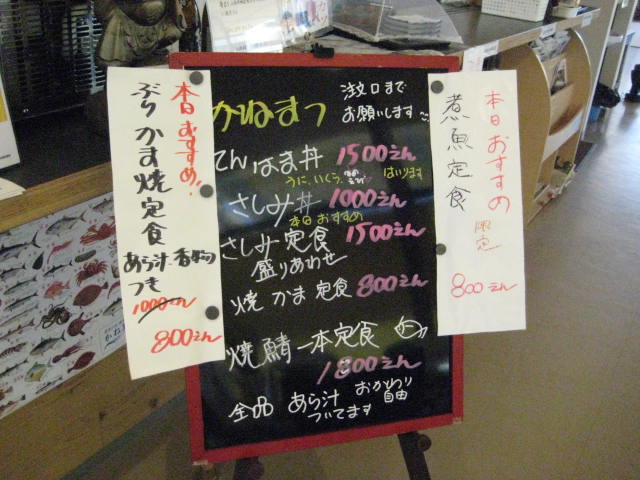 本日おすすめ!
ぶりかま焼定食
あら汁・香物
つき
1000えん
800えん
かねまつ
注文口まで
お願いします
てんはま丼 1500えん
うに、いくら、 はいります
さしみ丼 1000えん
本日おすすめ
さしみ定食 1500えん
盛りあわせ
焼かま定食 800えん
焼鯖一本定食
1800えん
全品 あら汁 おかわり自由
ついてます
本日おすすめ
煮魚定食
限定
800えん